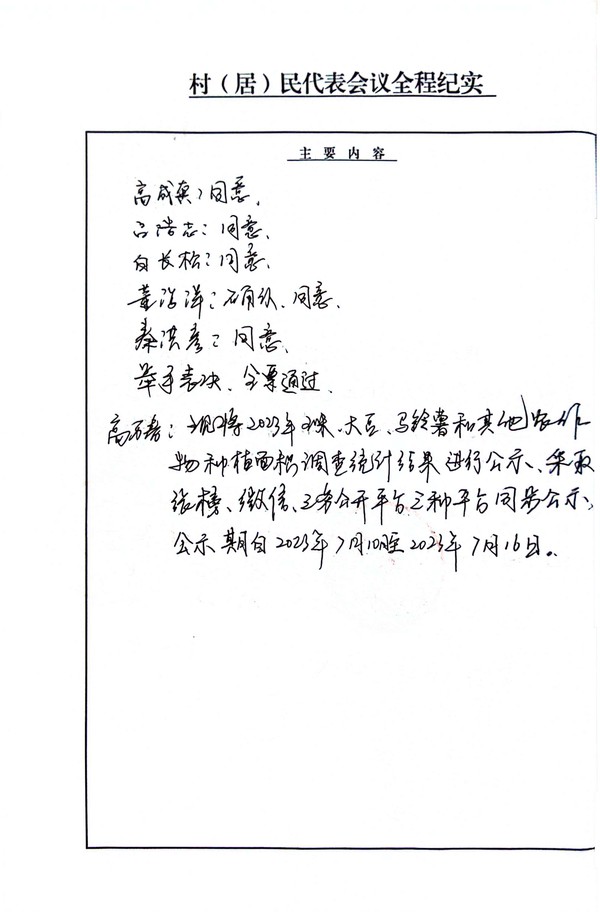 村（居）民代表会议全程纪实
主要内容
高成真：同意、
吕浩志：同意、
白长松：同意、
董洪洋：确认、同意、
秦洪彦：同意、
举手表决、全票通过、
高万春：现将2023年玉米、大豆、马铃薯和其他农作
物种植面积调查统计结果进行公示、采取
张榜、微信、三务公开平台三种平台同步公示、
公示期自2023年7月10日至2023年7月16日。